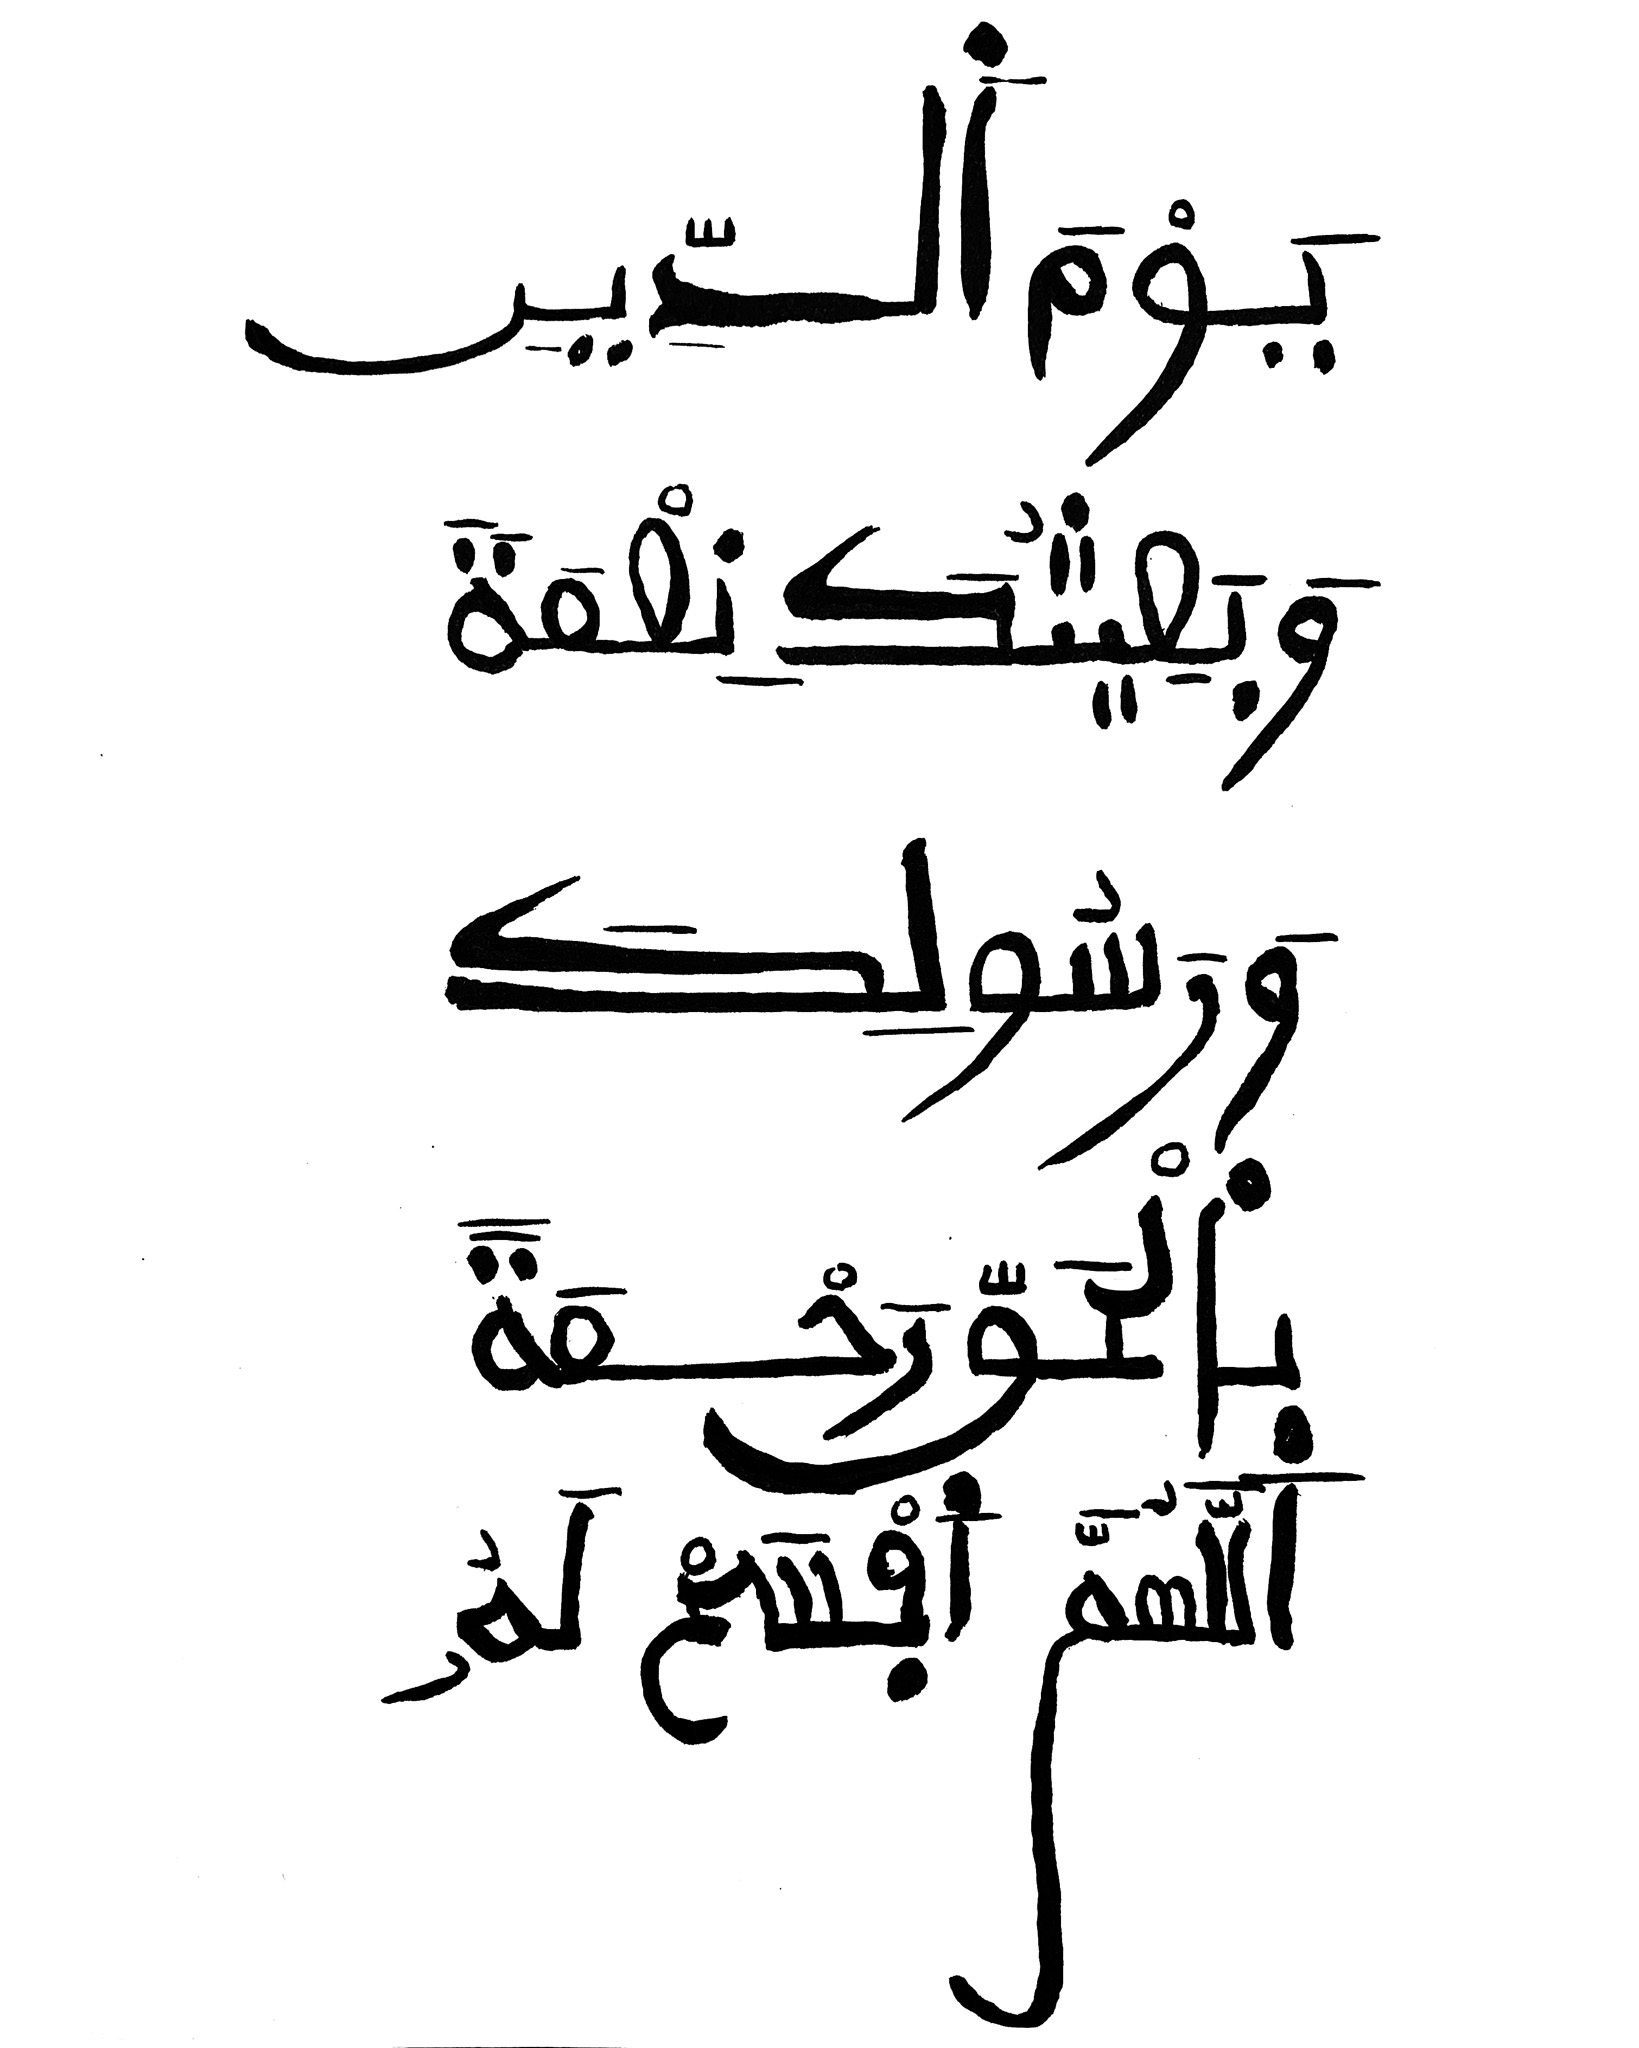 يَوْمَ الدِّينِ
وَبَعِيثُكَ نِعْمَةً
وَرَسُولِكَ
بِالْحَقِّ رَحْمَةً
اَللَّهُمَّ اَفْسَحْ لَهُ